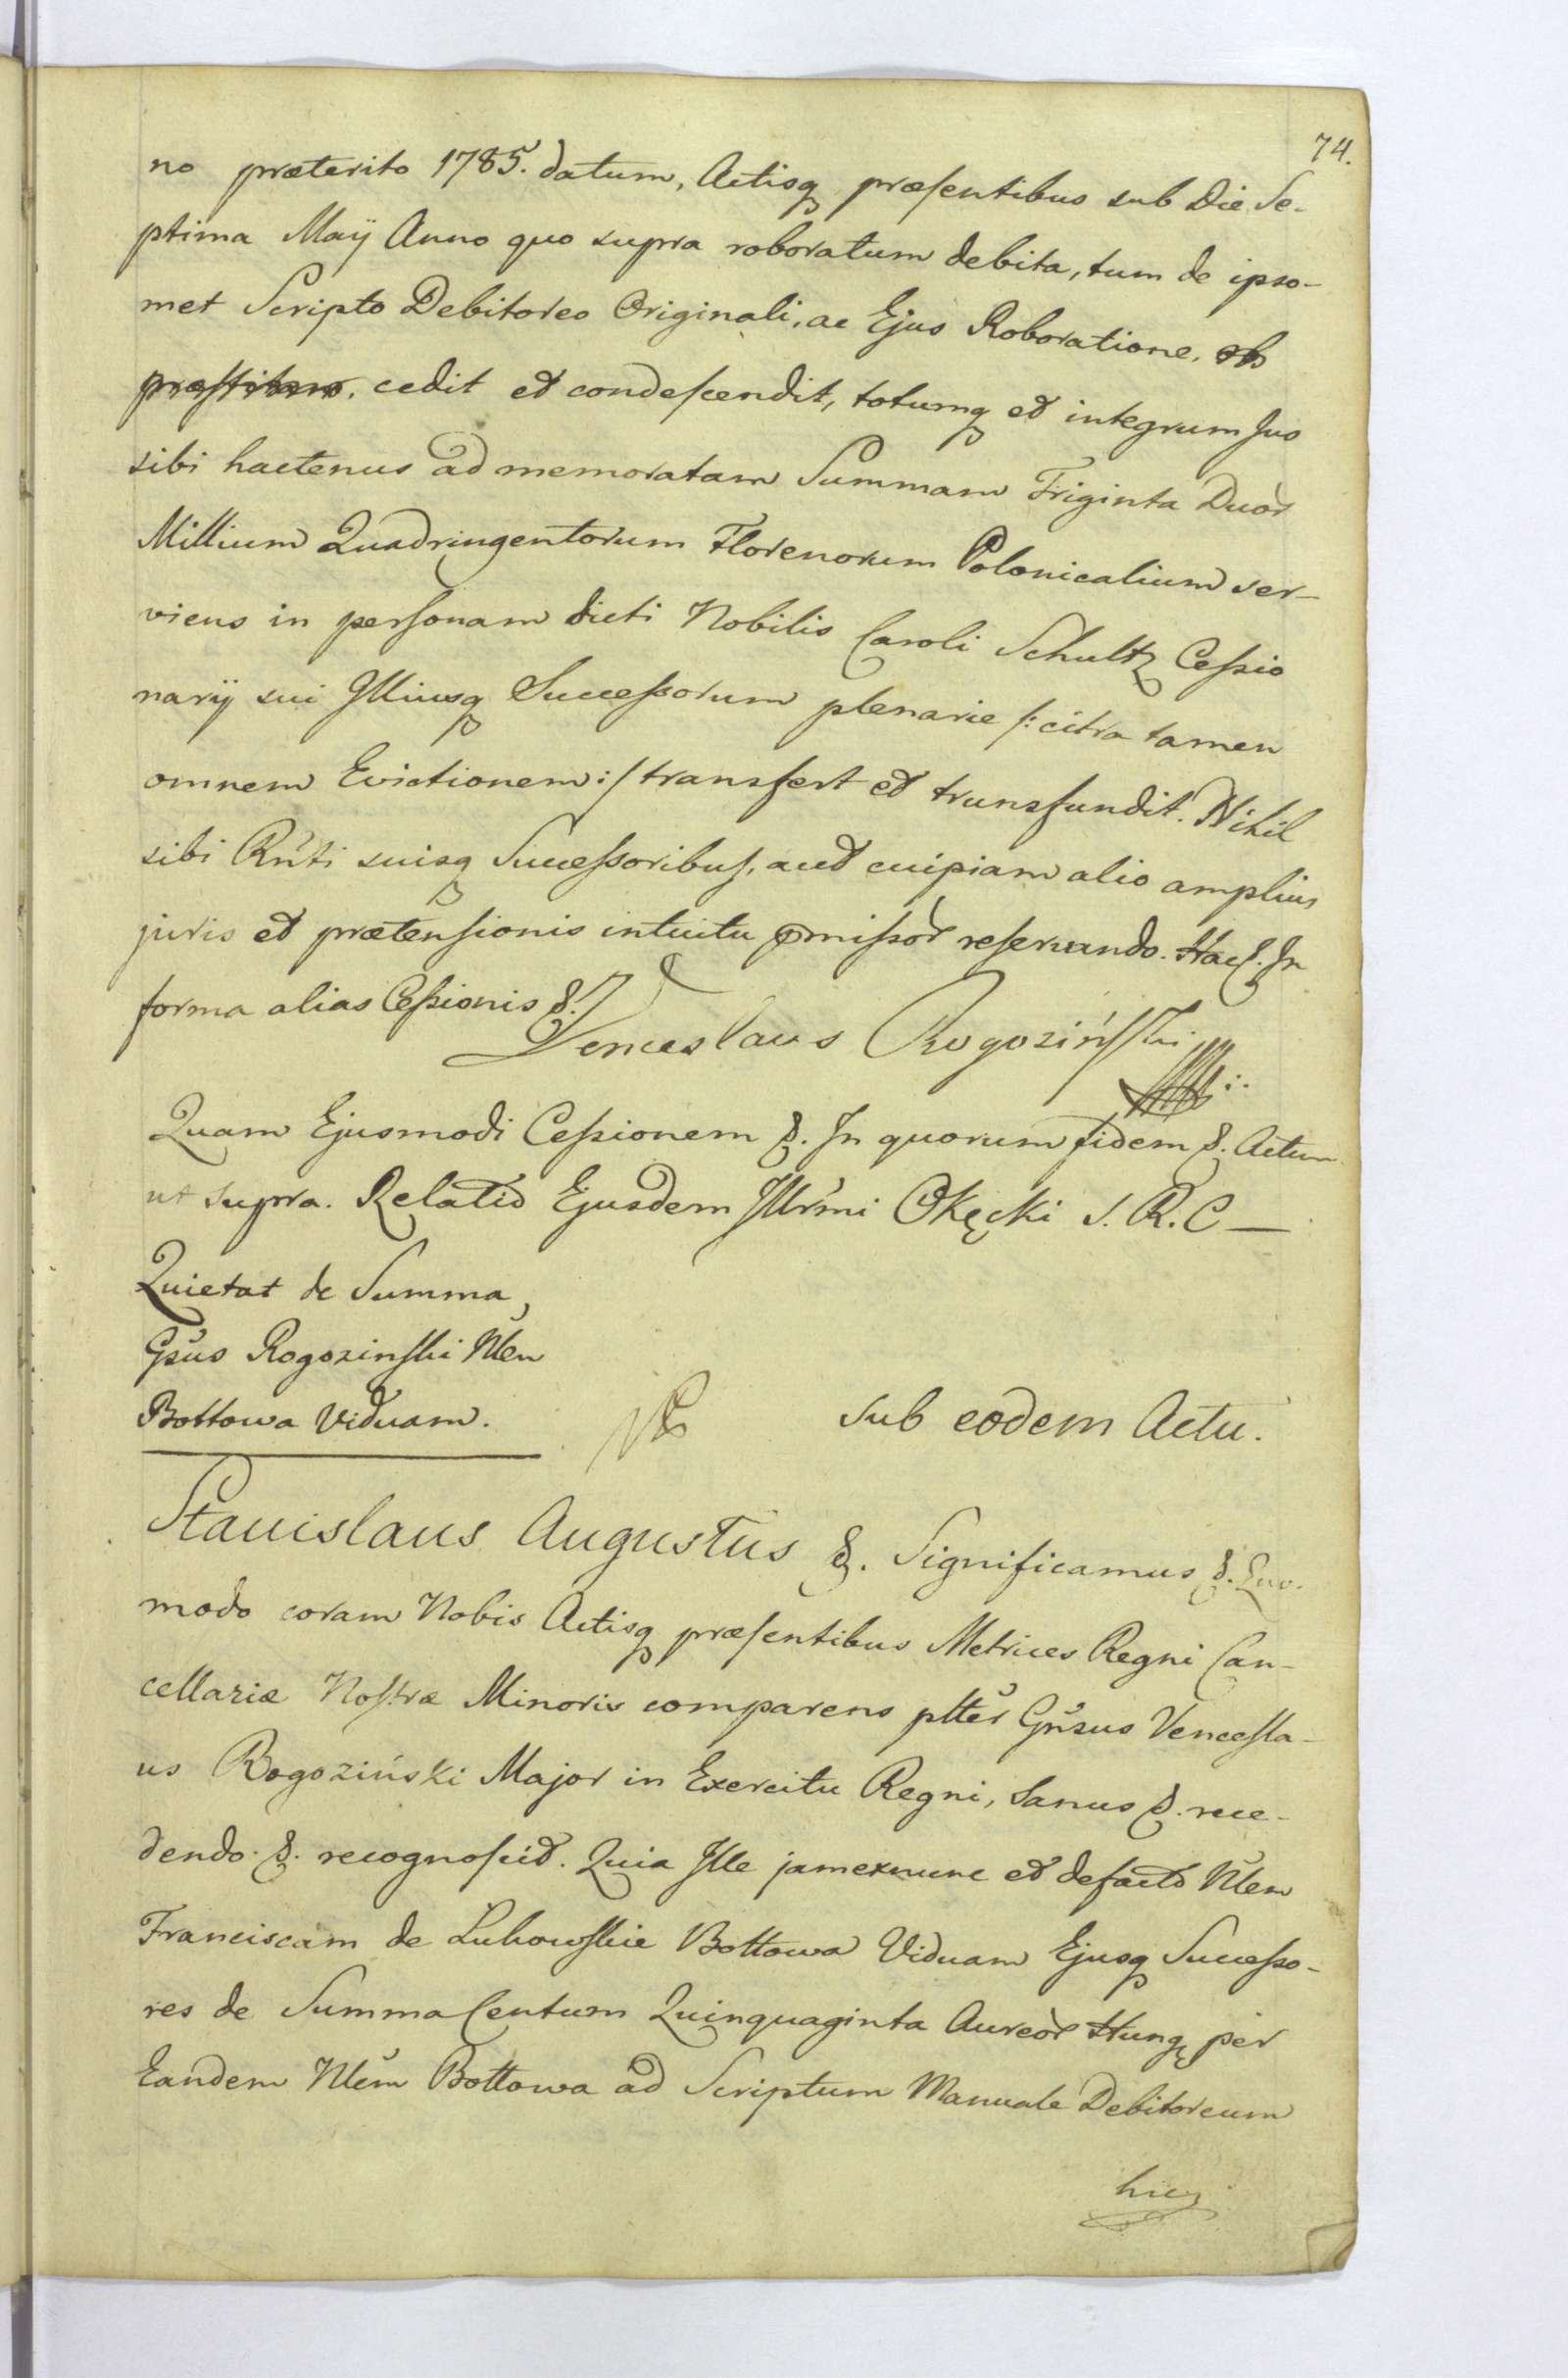 74.
no præterito 1785. datum, Actisq præsentibus sub Die Se-
ptima Maÿ Anno quo supra roboratum debita, tum de ipso-
met Scripto Debitoreo Originali, ac Ejus Roboratione,
cedit et condescendit, totumq et integrum Jus
sibi hactenus ad memoratam Summam Triginta Duor
Millium Quadringentorum Florenorum Polonicalium ser-
viens in personam dicti Nobilis Caroli Schultz Cessio
narÿ sui Illiusq Successorum plenarie /: citra tamen
omnem Evictionem :/ transfert et transfundit. Nihil
sibi Rńti suisq Successoribus, aut cuipiam alio amplius
juris et prætensionis intuitu pmissor reservando. Hac &. In
forma alias Cessionis &.
Venceslaus Rogoziński
Quam Ejusmodi Cessionem &. In quorum fidem &. Actum
ut supra. Relatio Ejusdem Illrmi Okęcki S. R. C —
Quietat de Summa,
Gsus Rogozinski Nlem
Bottowa Viduam.
Sub eodem Actu.
Stanislaus Augustus &. Significamus &. Quo.
modo coram Nobis Actisq præsentibus Metrices Regni Can-
cellariæ Nostræ Minoris comparens pltter Gnsus Vencesla-
us Rogoziński Major in Exercitu Regni, Sanus &. rece-
dendo. &. recognoscit. Quia Ille jamexnunc et defacto Nlem
Franciscam de Luhowskie Bottowa Viduam Ejusq Successo-
res de Summa Centum Quinquaginta Aureor Hung per
Eandem Nlem Bottowa ad Scriptum Manuale Debitoreum
hic